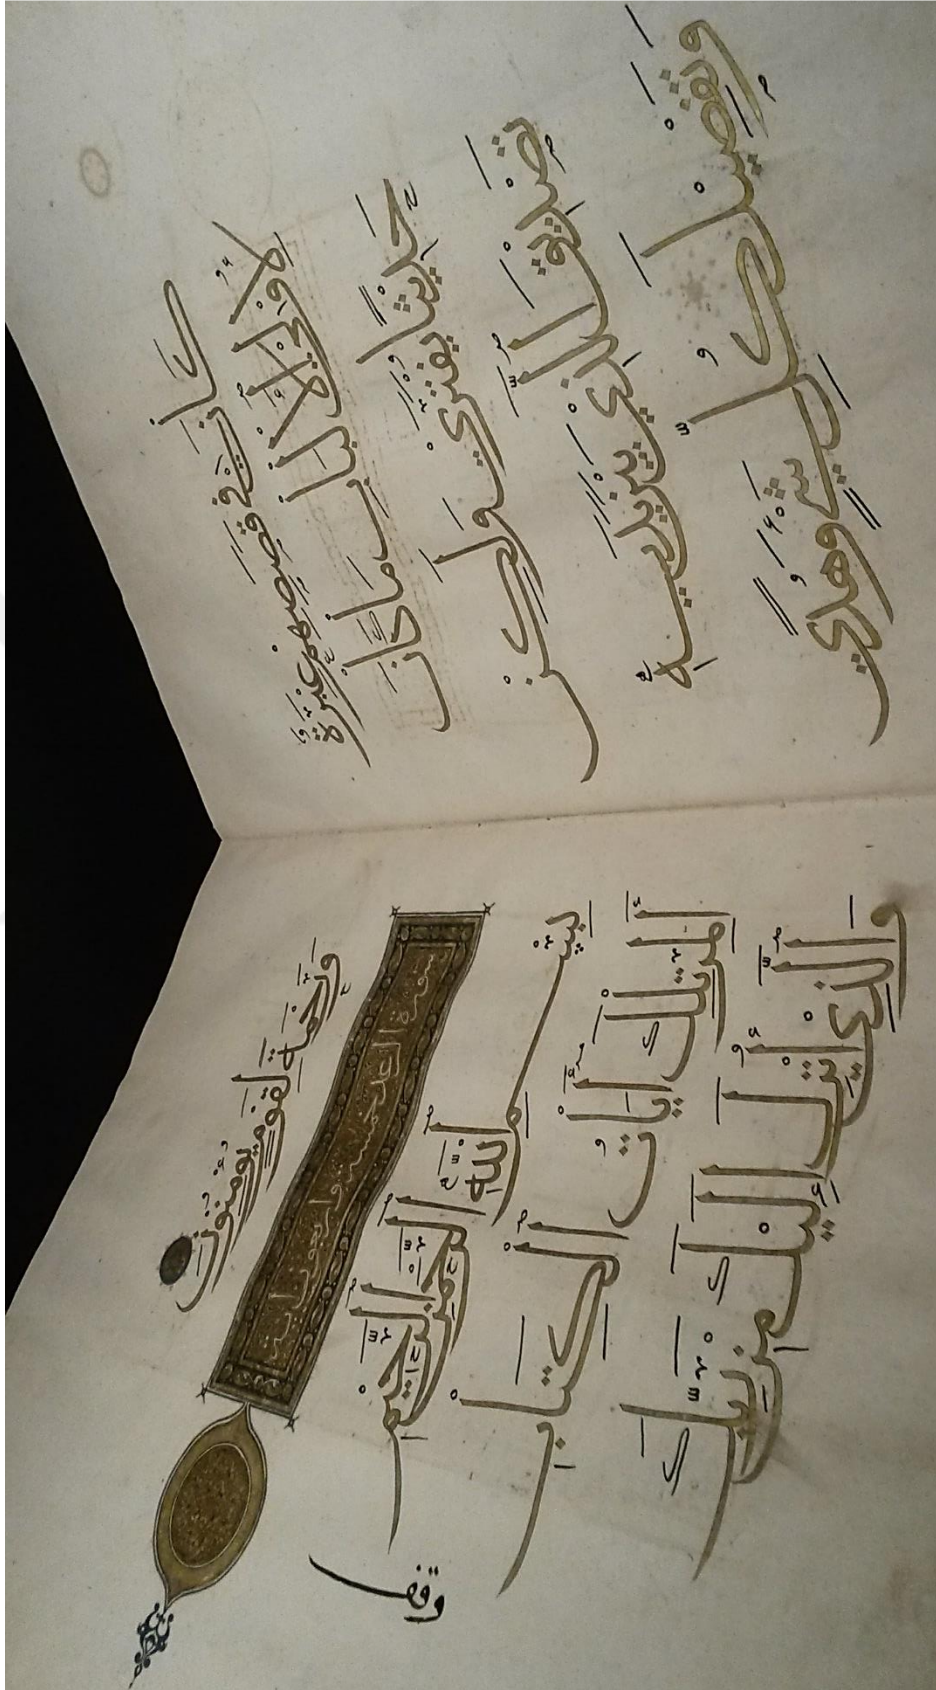 كَانَ فِي قَصَصِهِمْ عِبْرَةٌ
لِأُولِي الْأَلْبَابِ مَا كَانَ
حَدِيثًا يُفْتَرَى وَلَكِنْ
تَصْدِيقَ الَّذِي بَيْنَ يَدَيْهِ
وَتَفْصِيلَ كُلِّ شَيْءٍ وَهُدًى
وَرَحْمَةً لِقَوْمٍ يُؤْمِنُونَ
سورة الرعد خمس واربعون اية
بِسْمِ اللَّهِ الرَّحْمَنِ الرَّحِيمِ
وقف
أَلَمَر تِلْكَ أَيَاتُ الْكِتَابِ
وَالَّذِي أُنْزِلَ إِلَيْكَ مِنْ رَبِّكَ